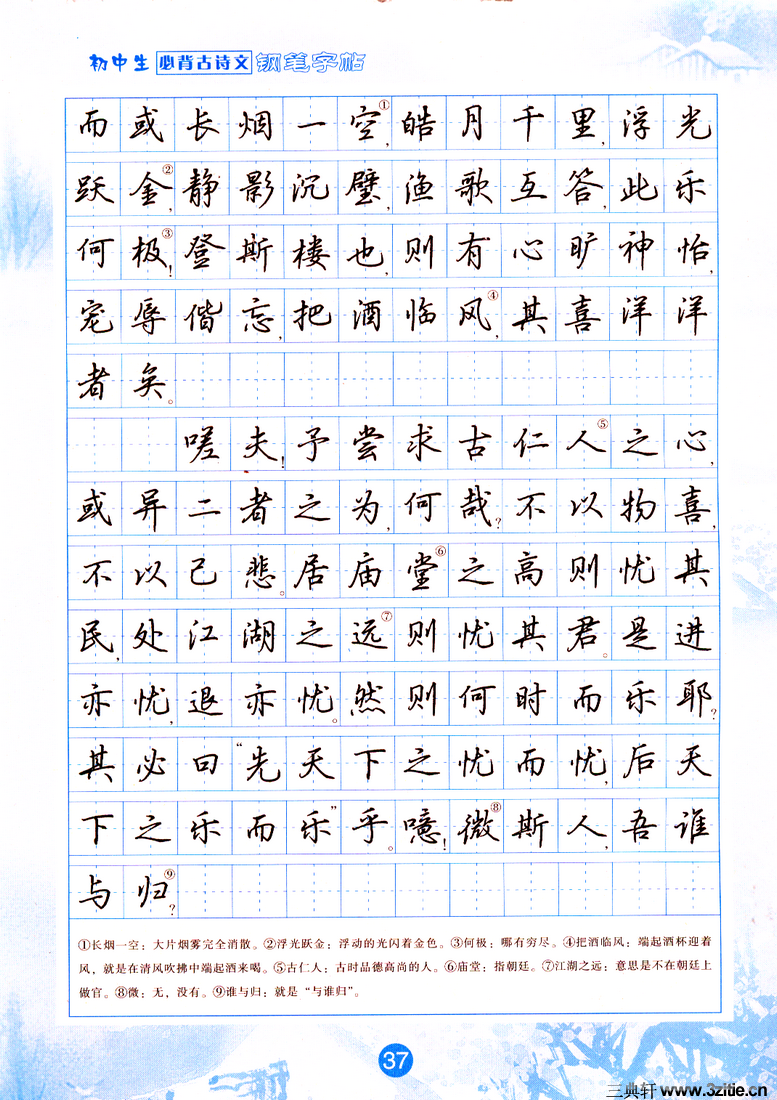 初中生 必背古诗文 钢笔字帖
而或长烟一空①,皓月千里,浮光
跃金②,静影沉璧,渔歌互答,此乐
何极③!登斯楼也,则有心旷神怡,
宠辱偕忘,把酒临风④,其喜洋洋
者矣。
嗟夫!予尝求古仁人⑤之心,
或异二者之为,何哉?不以物喜,
不以己悲。居庙堂⑥之高则忧其
民,处江湖之远⑦则忧其君。是进
亦忧,退亦忧。然则何时而乐耶?
其必曰“先天下之忧而忧,后天
下之乐而乐”乎。噫!微⑧斯人,吾谁
与归⑨?
①长烟一空：大片烟雾完全消散。②浮光跃金：浮动的光闪着金色。③何极：哪有穷尽。④把酒临风：端起酒杯迎着
风，就是在清风吹拂中端起酒来喝。⑤古仁人：古时品德高尚的人。⑥庙堂：指朝廷。⑦江湖之远：意思是不在朝廷上
做官。⑧微：无，没有。⑨谁与归：就是“与谁归”。
37
三典轩 www.3zitie.cn